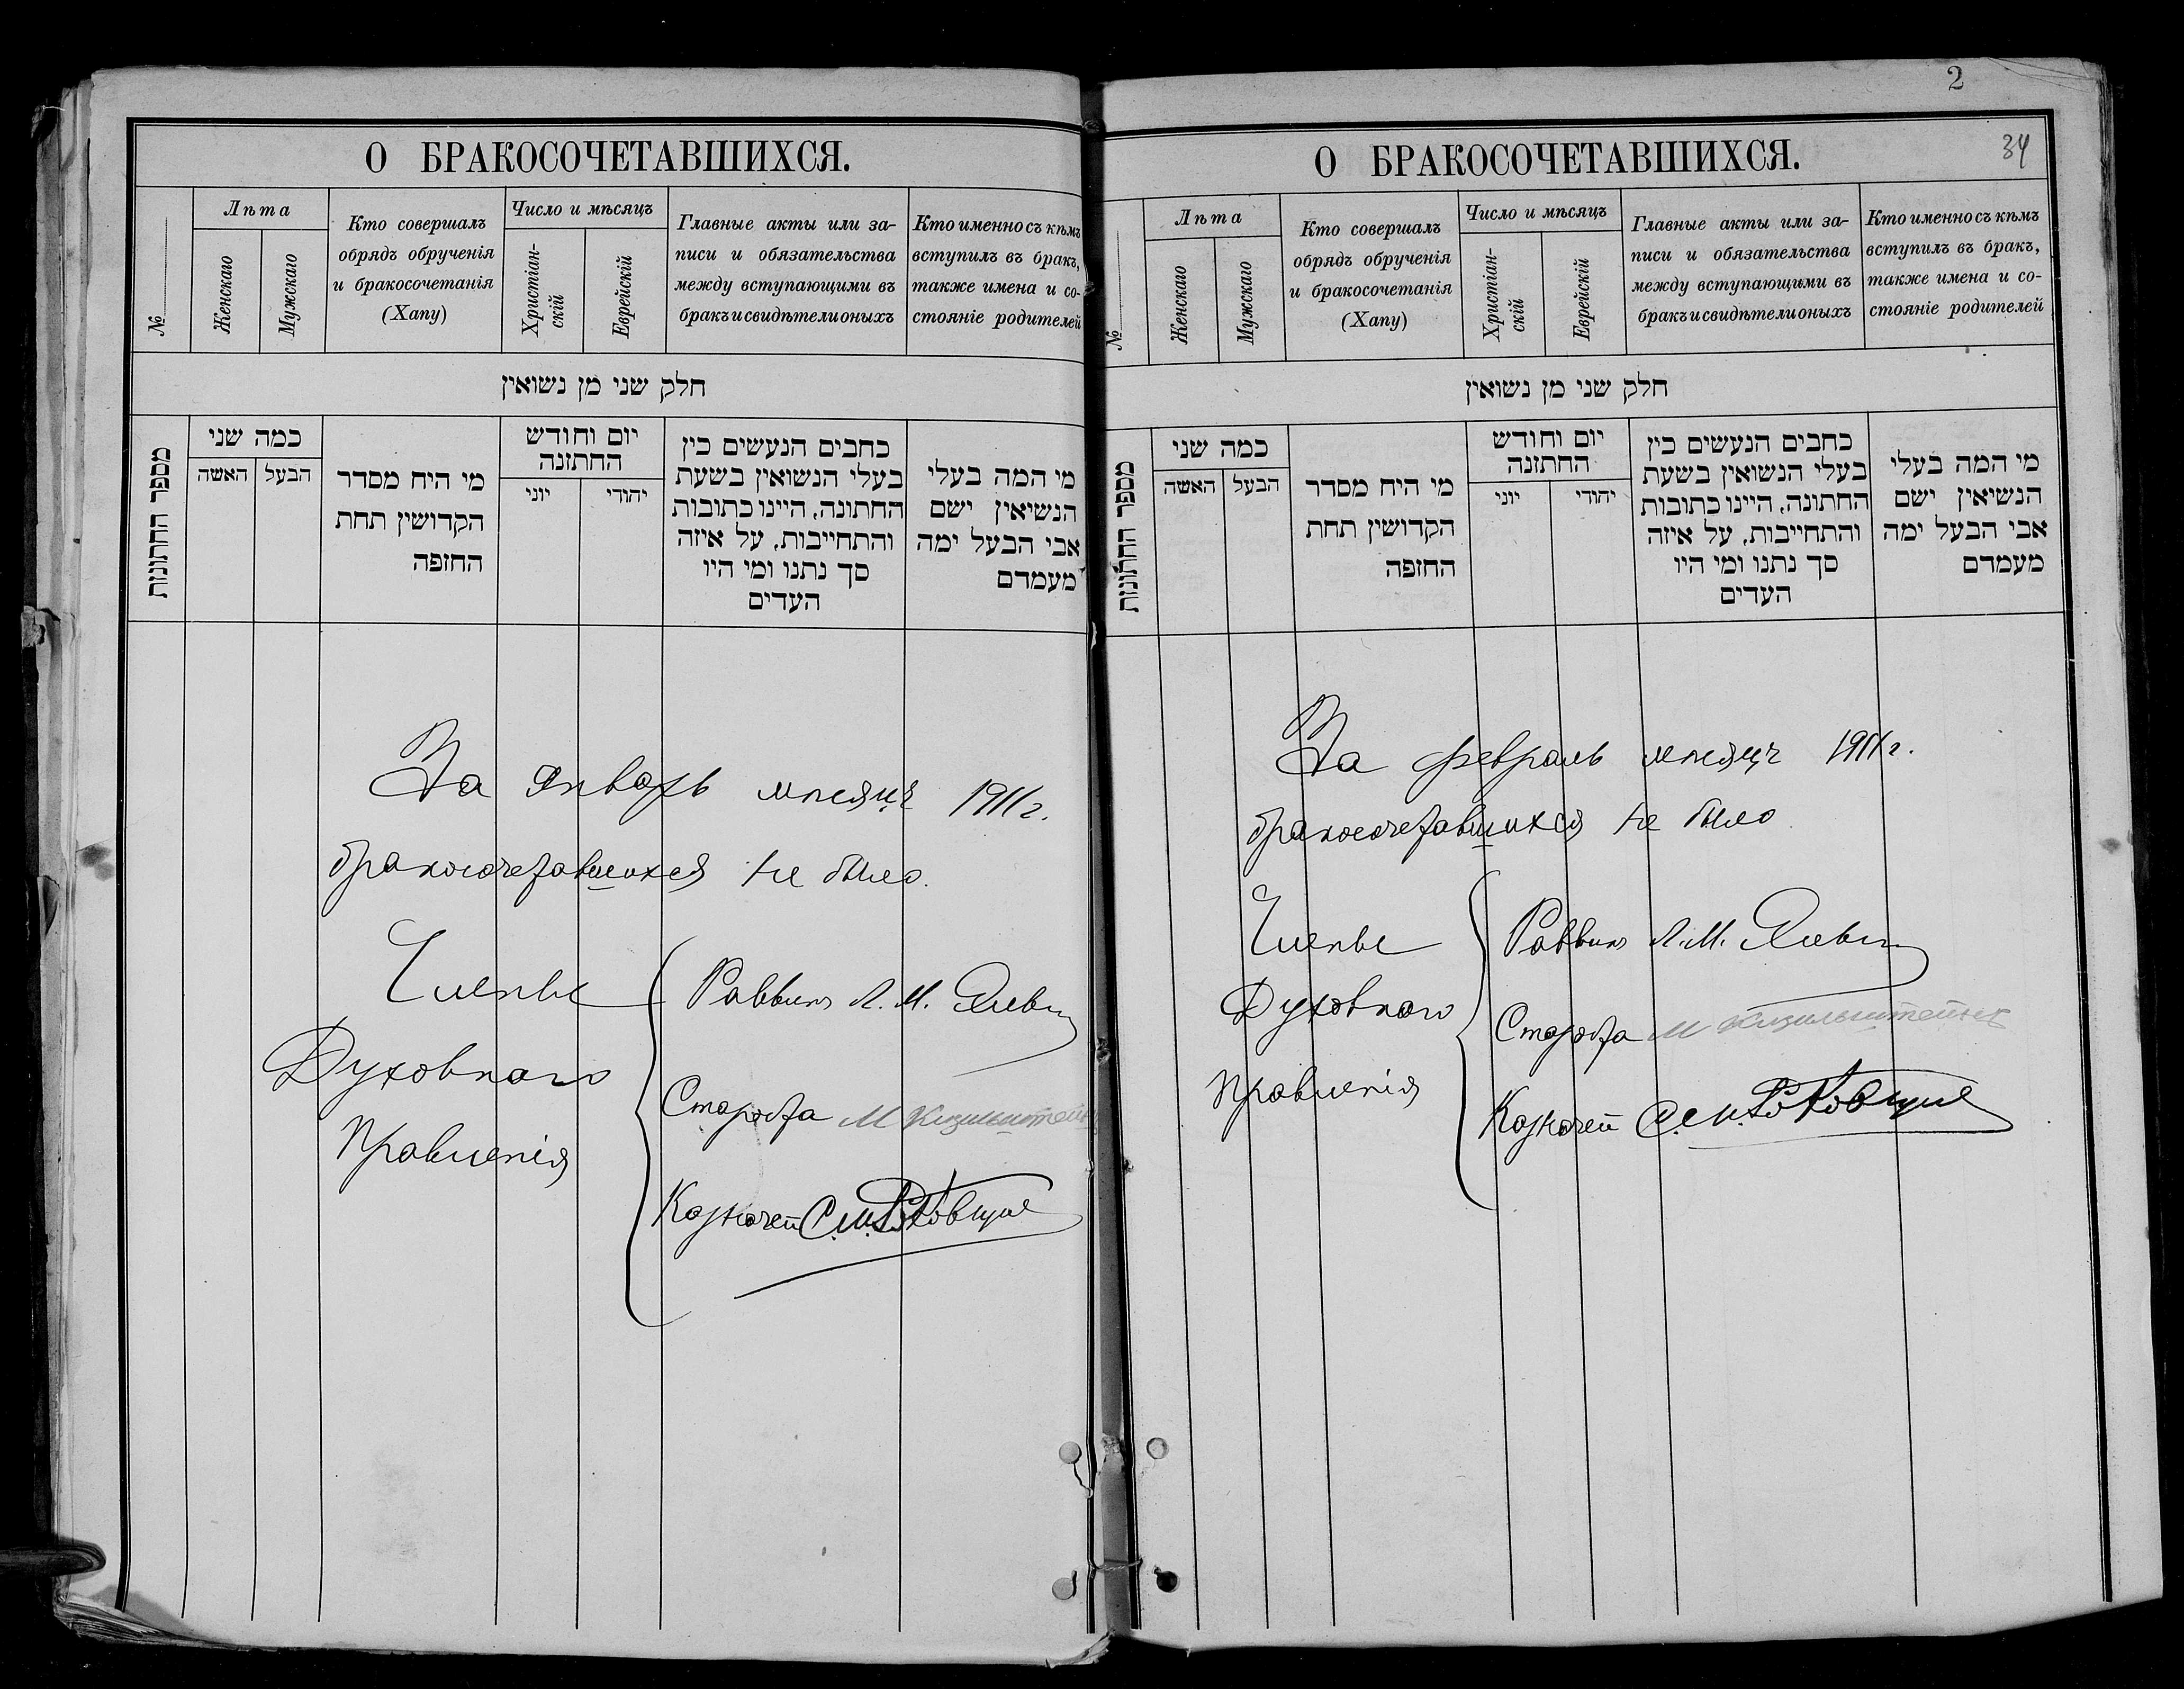 О БРАКОСОЧЕТАВШИХСЯ.
№
Лѣта
Женскаго
Мужскаго
Кто совершалъ
обрядъ обрученія
и бракосочетанія
(Хапу)
Число и мѣсяцъ
Христіан-
скій
Еврейскій
Главные акты или за-
писи и обязательства
между вступающими въ
бракъ и свидѣтели оныхъ
Кто именно съ кѣмъ
вступилъ въ бракъ,
также имена и со-
стояніе родителей
חלק שני מן נשואין
מספר החתונות
כמה שני
האשה
הבעל
מי היח מסדר
הקדושין תחת
החופה
יום וחודש
החתונה
יוני
יהודי
כחבים הנעשים כין
בעלי הנשואין בשעת
החתונה, היינו כתובות
והתחייבות, על איזה
סך נתנו ומי היו
העדים
מי המה בעלי
הנשיאין ישם
אבי הבעל ימה
מעמדם
За Январь мѣсяцъ 1911 г.
бракосочетавшихся не было.
Члены
Духовнаго
Правленія
Раввинъ Л. М.
Староста М
Казначей С. М.
2
34
О БРАКОСОЧЕТАВШИХСЯ.
№
Лѣта
Женскаго
Мужскаго
Кто совершалъ
обрядъ обрученія
и бракосочетанія
(Хапу)
Число и мѣсяцъ
Христіан-
скій
Еврейскій
Главные акты или за-
писи и обязательства
между вступающими въ
бракъ и свидѣтели оныхъ
Кто именно съ кѣмъ
вступилъ въ бракъ,
также имена и со-
стояніе родителей
חלק שני מן נשואין
מספר החתונות
כמה שני
האשה
הבעל
מי היח מסדר
הקדושין תחת
החופה
יום וחודש
החתונה
יוני
יהודי
כחבים הנעשים כין
בעלי הנשואין בשעת
החתונה, היינו כתובות
והתחייבות, על איזה
סך נתנו ומי היו
העדים
מי המה בעלי
הנשיאין ישם
אבי הבעל ימה
מעמדם
За февраль мѣсяцъ 1911 г.
бракосочетавшихся не было
Члены
Духовнаго
Правленія
Раввинъ Л. М.
Староста М
Казначей С. М.